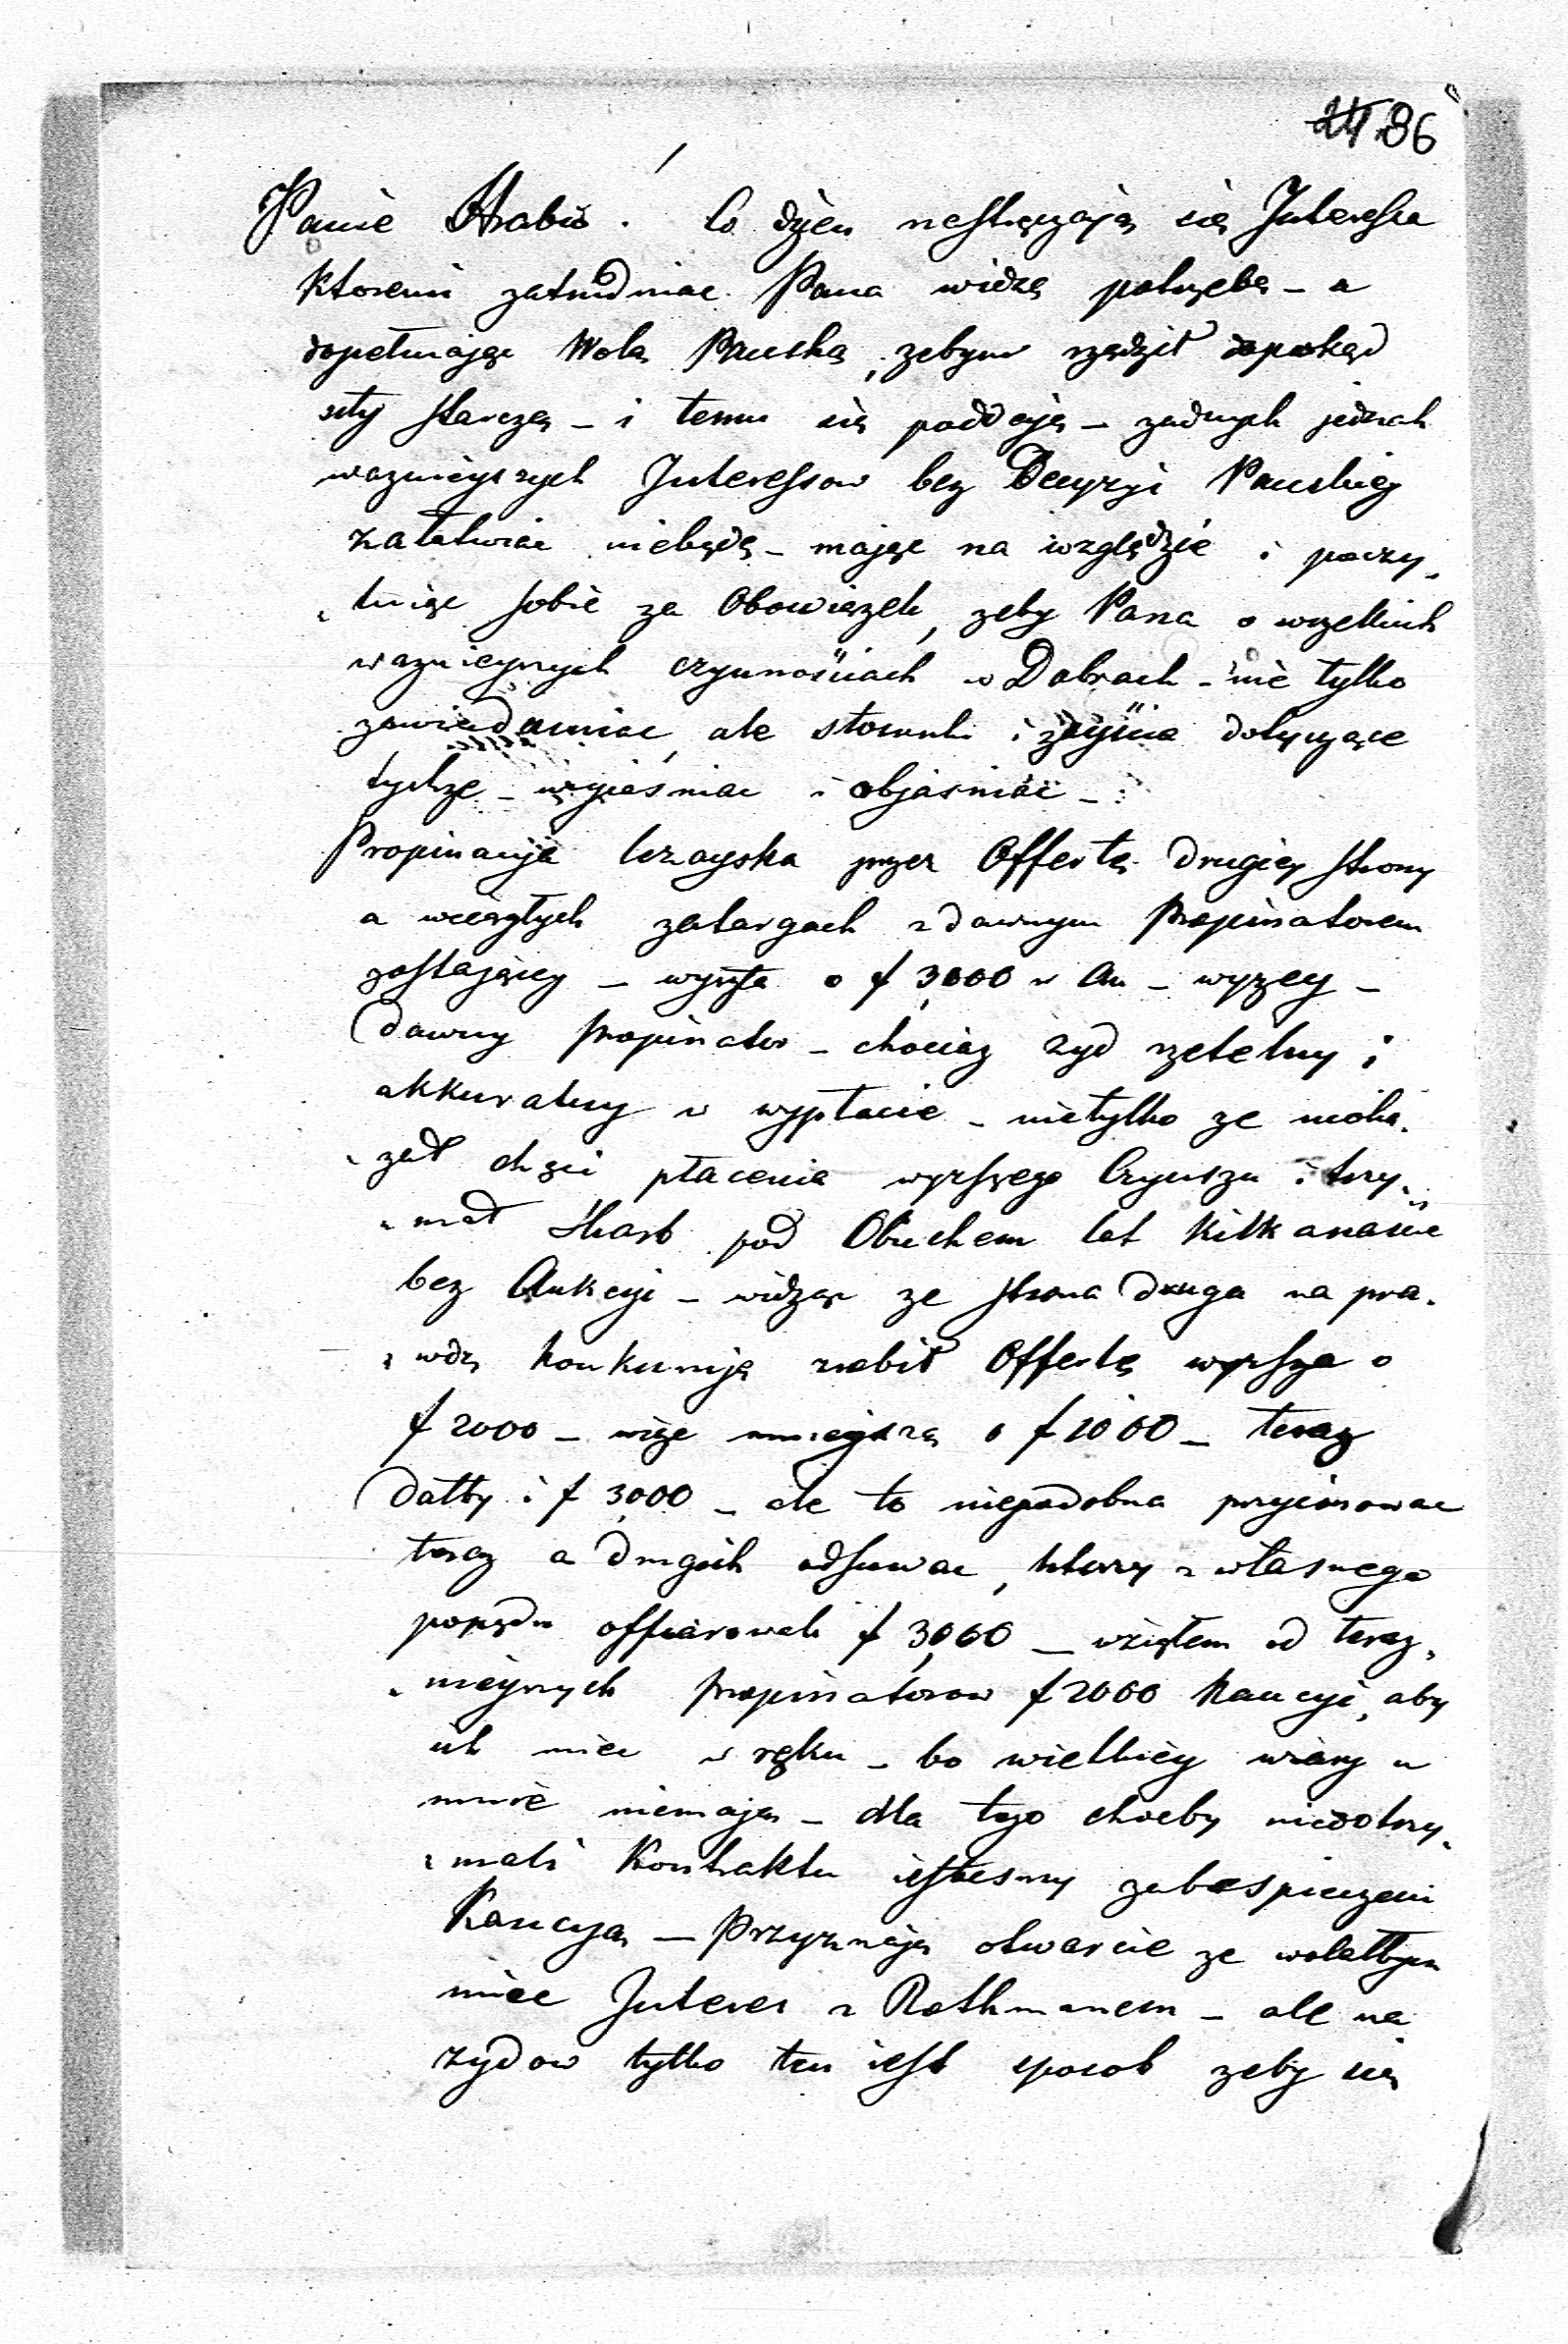 24. 86
Panie Hrabio. Co dzien nastręczają się Interessa
ktoremi zatrudniac Pana widzę potrzebę - a
dopełniając Wolą Pańską, zebym rządził dopokąd
siły starczą - i temu się poddaję - zadnych jednak
waznieyszych Interessow bez Decyzyi Panskiey
załatwiac niebędę - mając na względzie i poczy„
„tuiąc sobie za Obowiązek, zeby Pana o wszelkich
waznieyszych czynnościach w Dobrach - nie tylko
zawiadamiac, ale stosunki i zayścia dotyczące
tychze - wyiaśniac i objasniac -
Propinacyja lezayska przez Offertę drugiey strony
a wciągłych zatargach z dawnym Propinatorem
zostającey - wyszła o f 3,000 w An - wyzey -
Dawny propinator - chociaz zyd rzetelny i
akkuratny w wypłacie - nietylko ze nieoka„
„zał chęci płacenia wyzszego Czynszu i trzy„
„mał Skarb pod Obuchem lat kilkanaście
bez Aukcyi - widząc ze strona druga na pra„
„wdę konkurują zrobił Offertę wyzszą o
f 2000 - więc mnieyszą o f 1000 - teraz
dałby i f 3,000 - ale to niepodobna przyimowac
teraz a drugich odsuwac, ktorzy z własnego
popędu offiarowali f 3,000 - wziąłem od teraz„
„nieyszych propinatorow f 2000 Kaucyi, aby
ich miec w ręku - bo wielkiey wiary u
mnie niemają - dla tego chocby niedotrzy„
„mali Kontraktu iestesmy zabespieczeni
Kaucyą - Przyznaję otwarcie ze wolałbym
miec Interes z Rothmanem - ale na
zydow tylko ten iest sposob zeby się